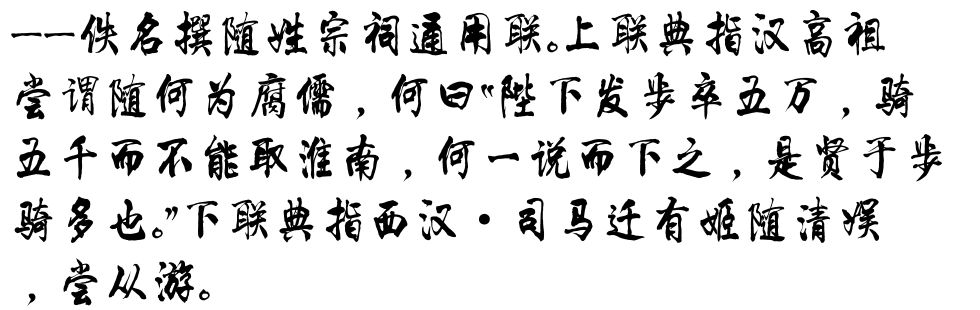 ——佚名撰随姓宗祠通用联。上联典指汉高祖
尝谓随何为腐儒，何曰“陛下发步卒五万，骑
五千而不能取淮南，何一说而下之，是贤于步
骑多也。”下联典指西汉·司马迁有姬随清娱
，尝从游。